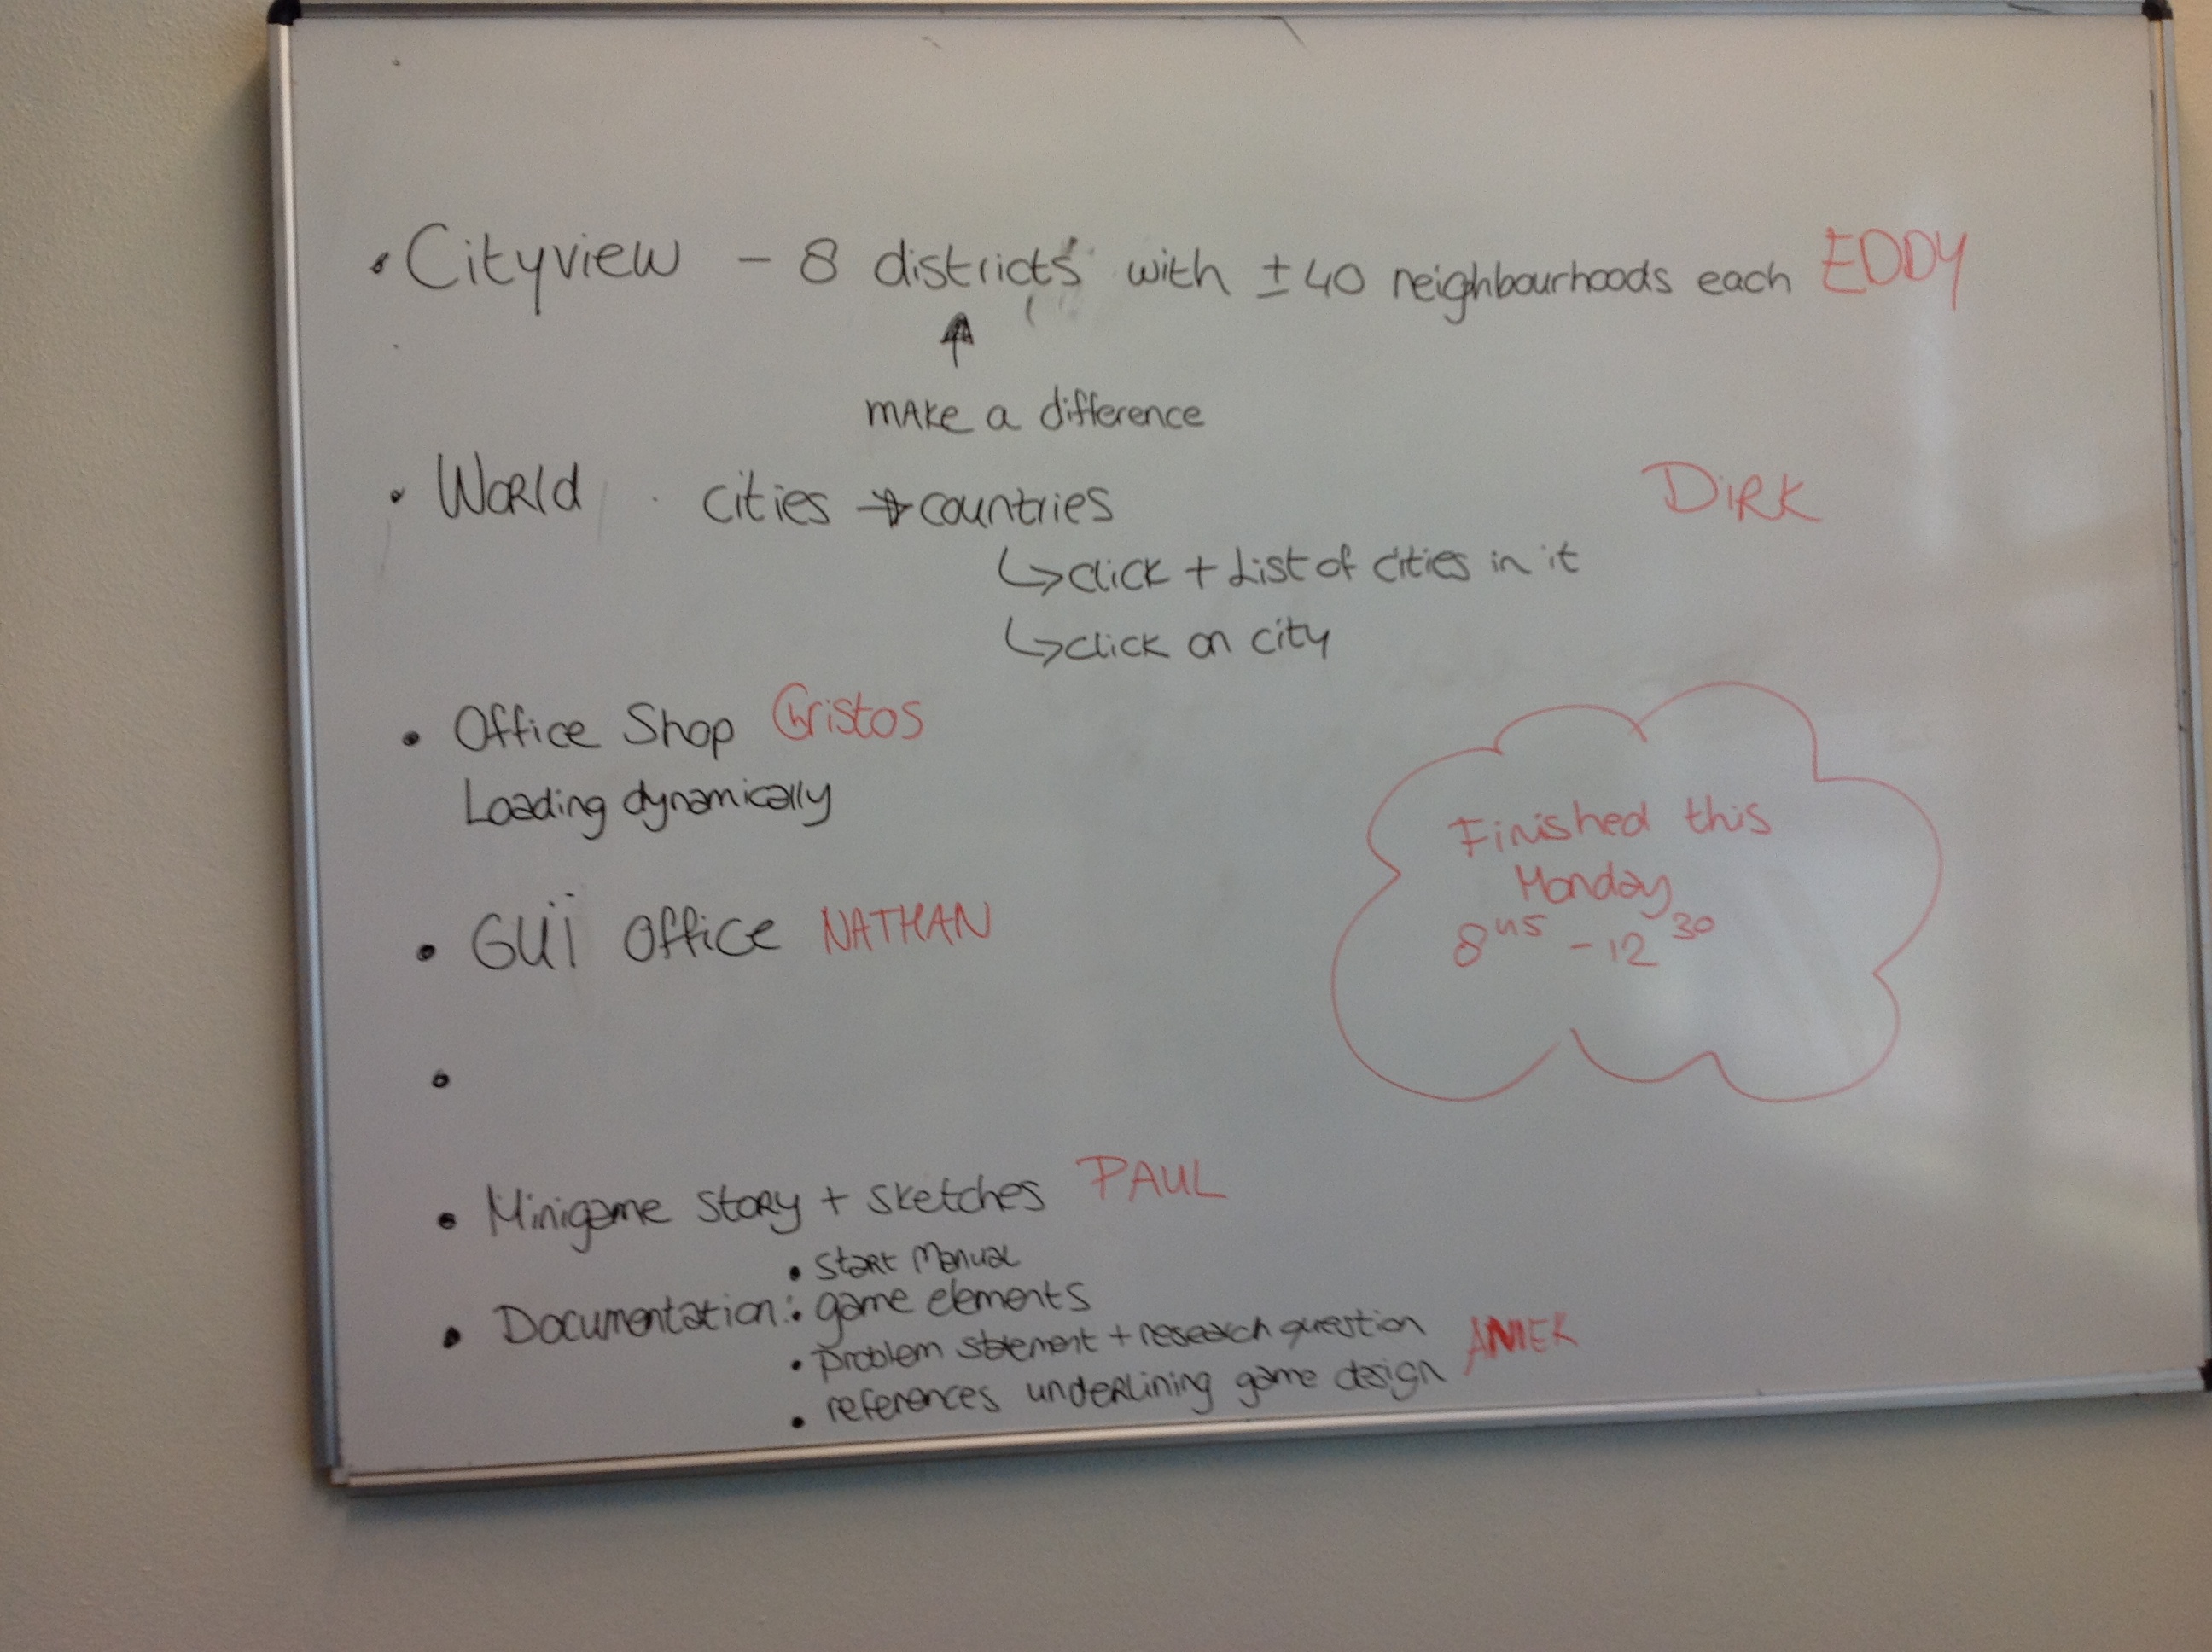 • Cityview – 8 districts with ±40 neighbourhoods each EDDY
make a difference
• World cities → countries DIRK
↳ click + List of cities in it
↳ click on city
• Office Shop Christos
Loading dynamically
Finished this
Monday
8⁴⁵ – 12³⁰
• GUi Office NATHAN
•
• Minigame story + sketches PAUL
• Start Manual
• Documentation: • game elements
• problem statement + research question ANIEK
• references underlining game design